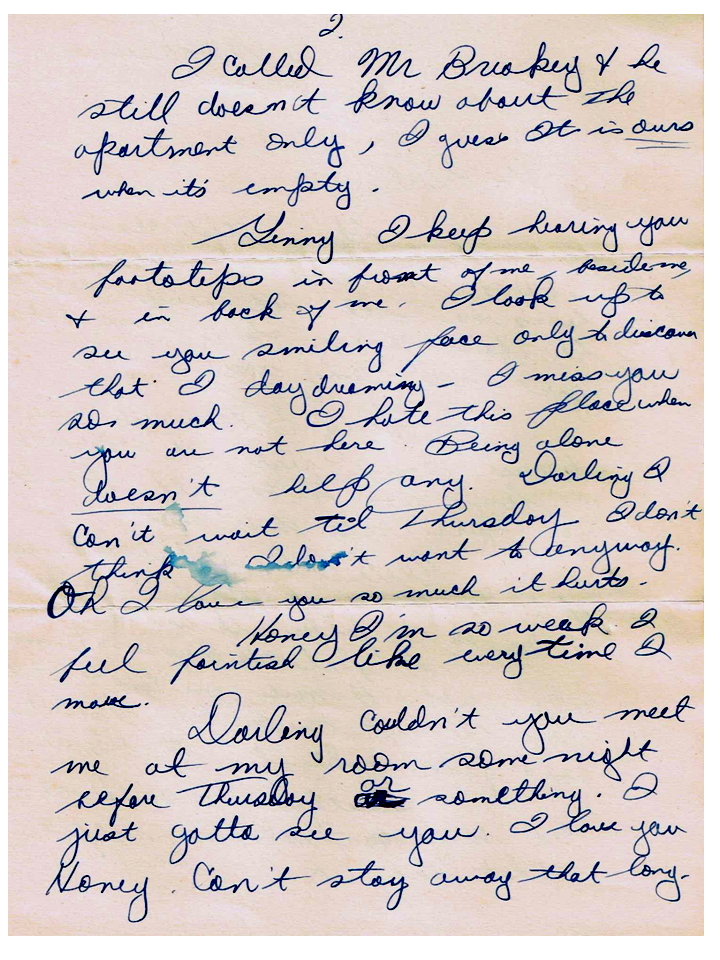 2.
I called Mr Breakey & he
still doesn't know about the
apartment only, I guess It is ours
when its' empty.
Ginny I keep hearing you
footsteps in front of me, beside me,
& in back of me. I look up to
see you smiling face only to discover
that I daydreaming - I miss you
so much. I hate this place when
you are not here. Being alone
doesn't help any. Darling I
Can't wait til Thursday I don't
think I don't want to anyway.
Oh I love you so much it hurts.
Honey I'm so weak I
feel faintish like everytime I
move.
Darling couldn't you meet
me at my room some night
before Thursday or something. I
just gotta see you. I love you
Honey. Can't stay away that long.